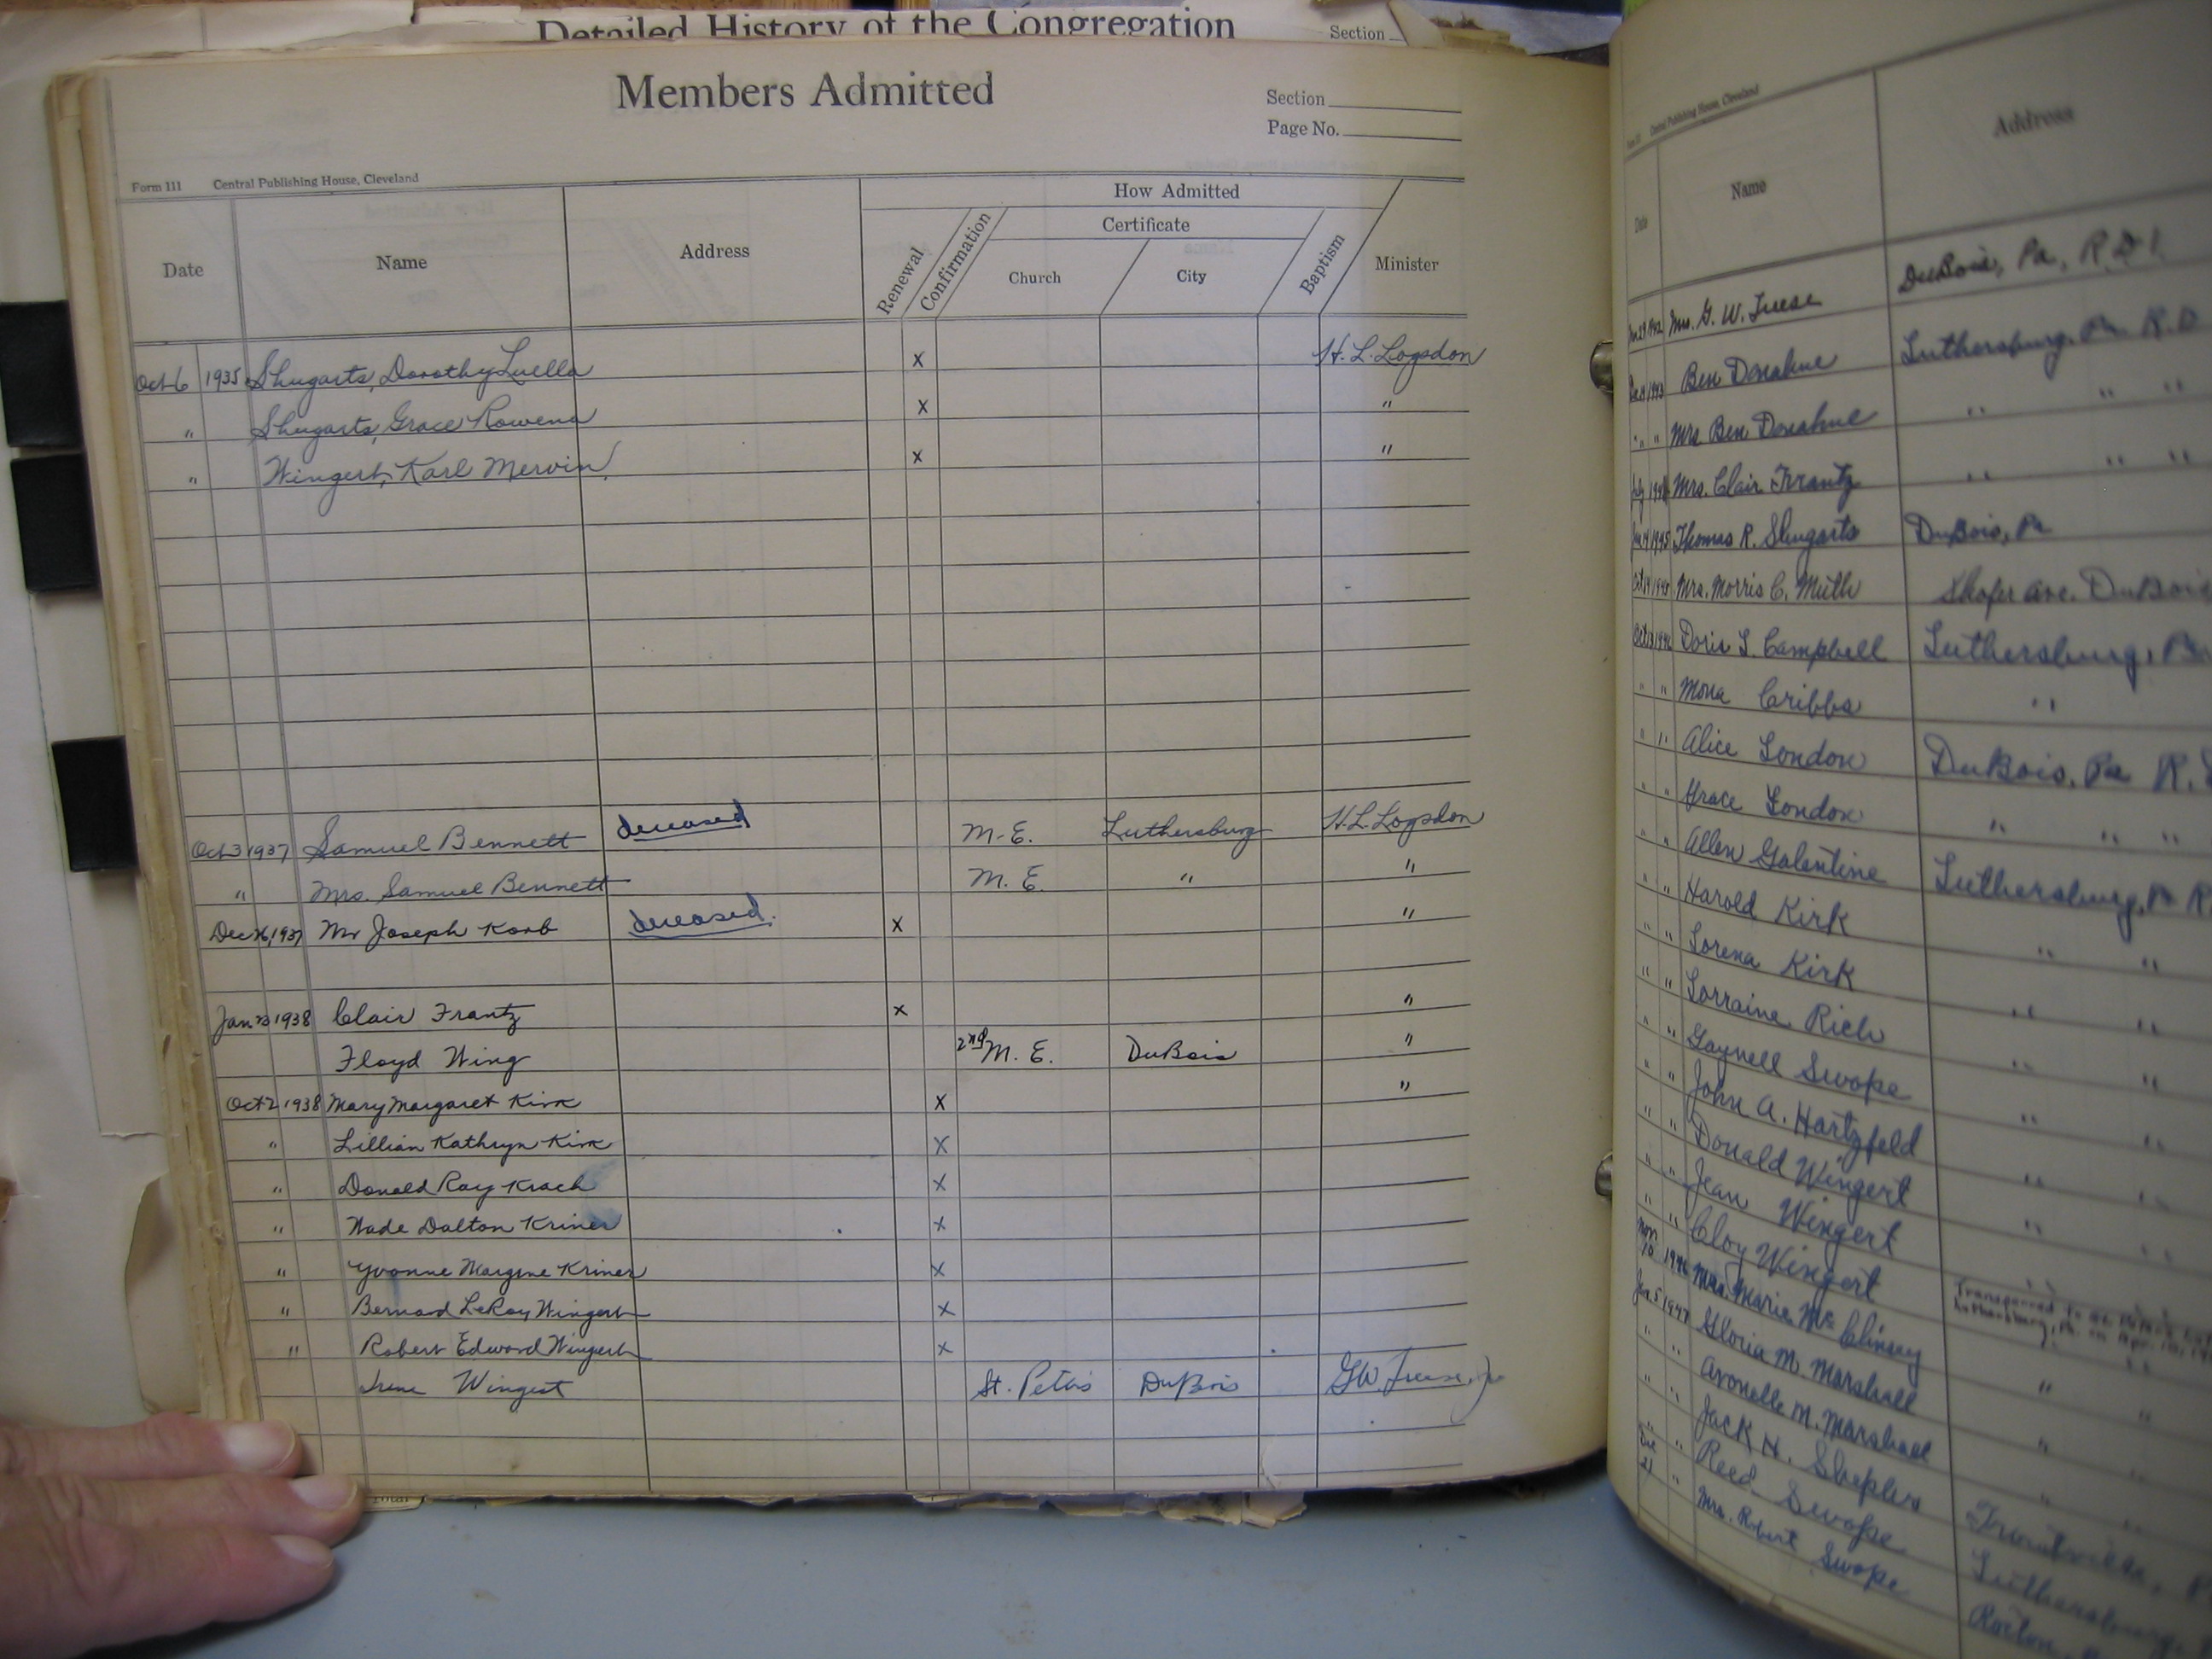 Detailed History of the Congregation
Section
Members Admitted
Section
Page No.
Form 111 Central Publishing House, Cleveland
How Admitted
Certificate
Date Name Address Renewal Confirmation Church City Baptism Minister
Oct 6 1935 Shugarts, Dorothy Luella x H. L. Logsdon
" Shugarts, Grace Rowena x "
" Wingert, Karl Mervin x "
Oct 3 1937 Samuel Bennett deceased M.E. Luthersburg H.L. Logsdon
" Mrs. Samuel Bennett M. E. " "
Dec 26, 1937 Mr Joseph Korb deceased. x "
Jan 23 1938 Clair Frantz x "
Floyd Wing 2nd M. E. DuBois "
Oct 2 1938 Mary Margaret Kirk x "
" Lillian Kathryn Kirk x
" Donald Ray Krach x
" Wade Dalton Kriner x
" Yvonne Margene Kriner x
" Bernard LeRoy Wingert x
" Robert Edward Wingert x
Irene Wingert St. Peter's DuBois G.W.
Total
Central Publishing House, Cleveland
Date Name Address
Mrs. G. W. DuBois, Pa, R.D 1.
Ben Donahue Luthersburg, Pa R.D
" " Mrs Ben Donahue " " "
Mrs. Clair Frantz " " "
1945 Thomas R. Shugarts DuBois, Pa
Mrs. Morris C. Muth Shafer ave. DuBois
Doris L. Campbell Luthersburg, Pa
" " Mona Cribbs "
" " Alice London DuBois, Pa R.
" " Grace London " " "
" " Allen Galentine Luthersburg, Pa R
" " Harold Kirk " "
" " Lorena Kirk " "
" " Lorraine Rich " "
" " Gaynell Swope " "
" " John A. Hartzfeld " "
" " Donald Wingert " "
" " Jean Wingert " "
" " Cloy Wingert
Nov 10 1946 Mrs. Marie Mc Transferred to
Luthersburg, Pa.
Jan. 5 1947 Gloria M. Marshall " "
" " Avonelle M. Marshall " "
" " Jack N.
" " Reed Swope Troutville,
Dec 21 " Mrs. Robert Swope Luthersburg,